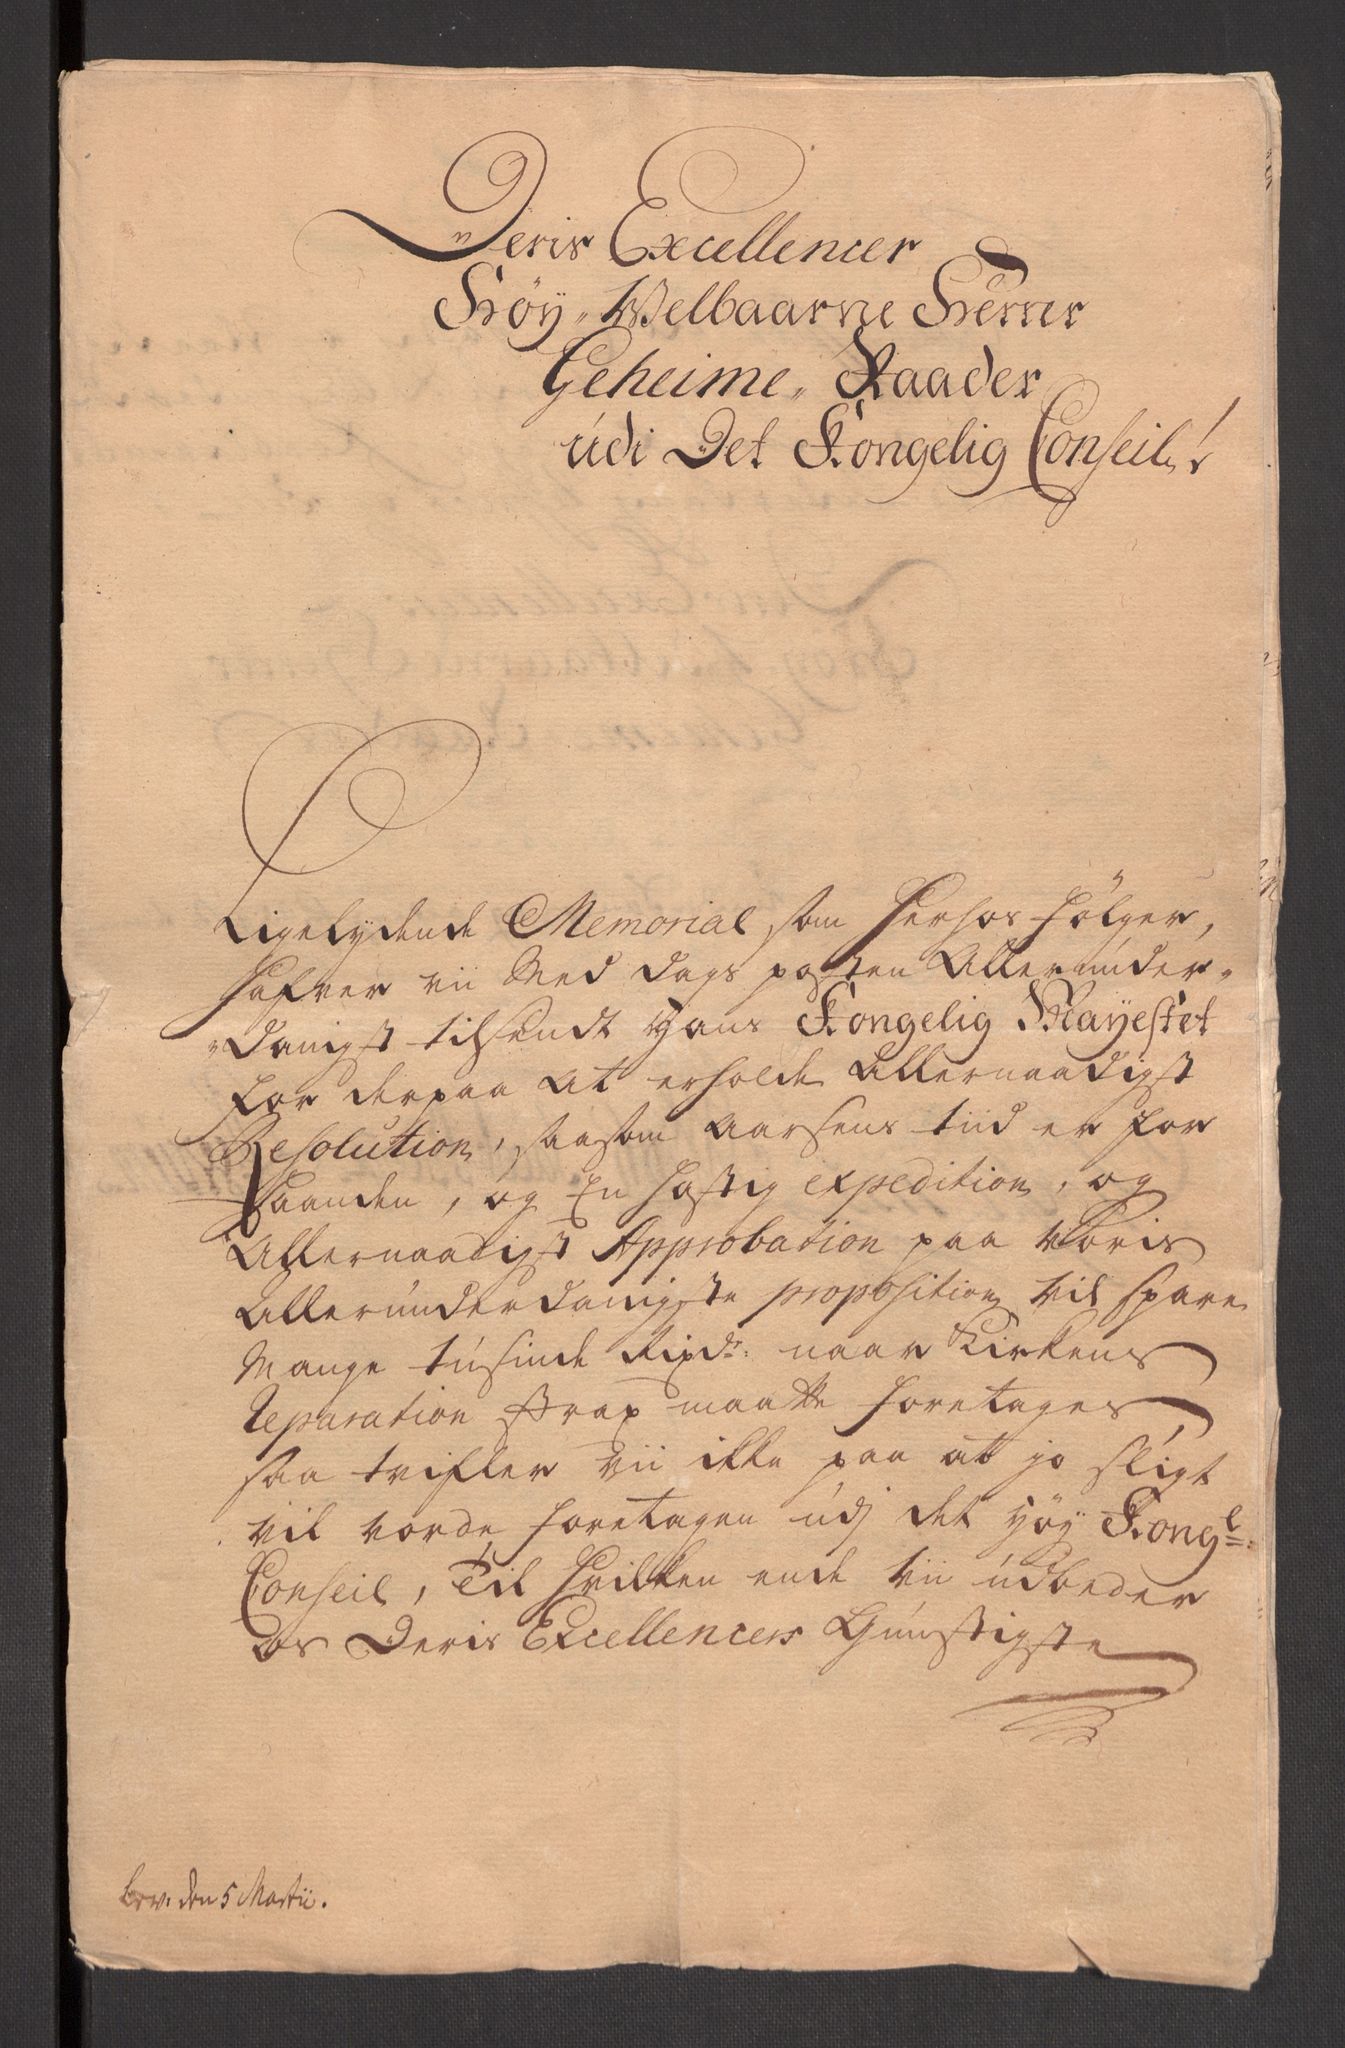 Deris Excellencer
Höy-Welbaarne Herrer
Geheime-Raader
udi Det Kongelig Conseil!
Ligelydende Memorial som herhos fölger,
hafver vii Med dags posten Allerunder-
-danigst tilsendt Hans Kongelig Mayestet
for derpaa at erholde allernaadigst
Resolution, saasom aarsens tiid er for
haanden, og En hastig expedition, og
Allernaadigst Approbation paa voris
Allerunderdanigste proposition vil spare
Mange tusinde Rixdr: naar Kirkens
Reparation strax maatte foretages
saa tvifler vii ikke paa at jo sligt
vil vorde foretagen udj det höy Kongl:
Conseil, Til hvilken ende vii udbeder
os Deris Excellencers Gunstigste
den 5 Martii.